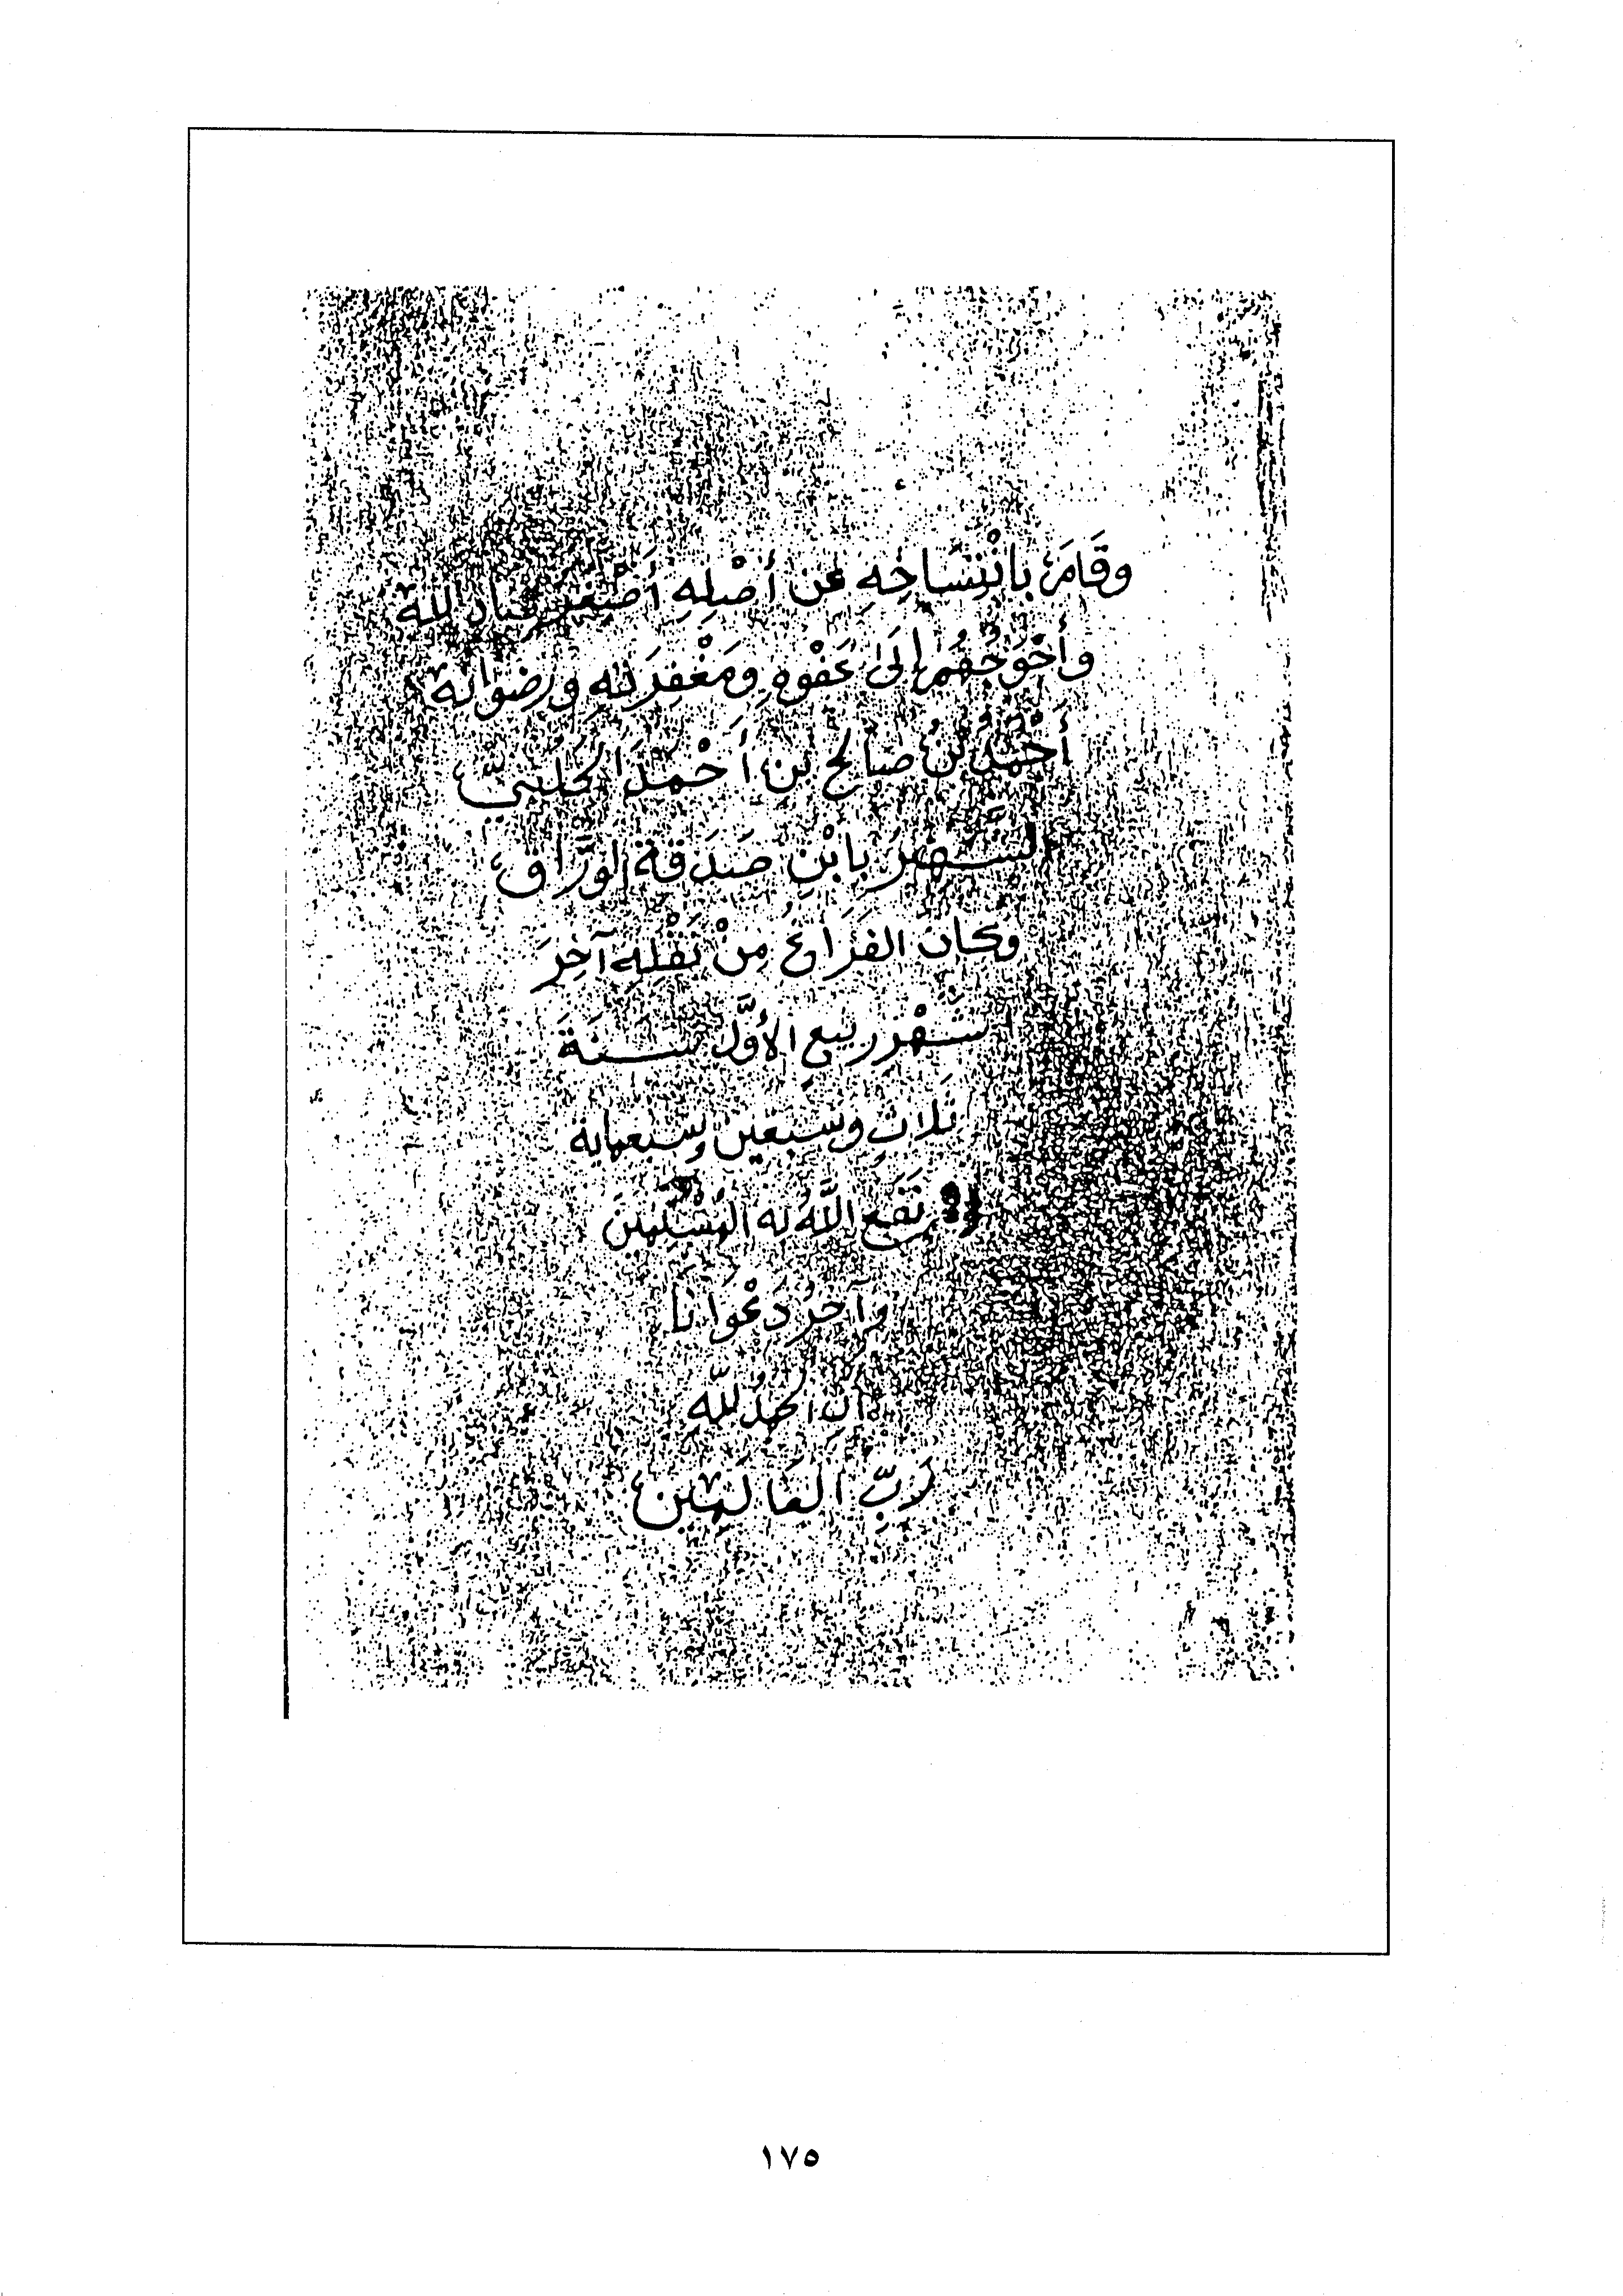 وقَامَ بانْتِسَاخِهِ عَن أَصْلِهِ أَصْغَرُ عِبَادِ اللهِ
وأَحْوَجُهُم إِلَى عَفْوِهِ ومَغْفِرَتِهِ ورِضْوَانِهِ
أَحْمَدُ بْنُ صَالِحِ بْنِ أَحْمَدَ الحَلَبِيّ
الشَّهِيرُ بِابْنِ صَدَقَةَ الوَرَّاق
وكَانَ الفَرَاغُ مِنْ نَقْلِهِ آخِرَ
شَهْرِ ربيع الأوَّل سَنَةَ
ثَلاثٍ وسَبْعِين وسَبْعمايَة
نَفَعَ اللَّهُ بِهِ المُسْلِمِينَ
وآخِرُ دَعْوَانَا
أنِ الحَمْدُ لِلَّهِ
رَبِّ العَالَمِين
١٧٥